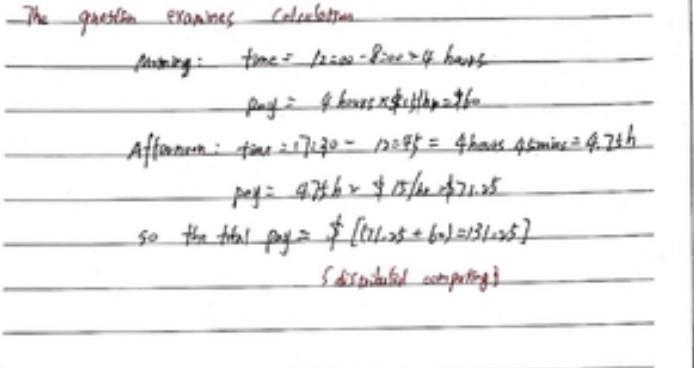 The question examines Calculation
Morning: time = 12:00 - 8:00 = 4 hours
pay = 4 hours × $15/hr = $60
Afternoon: time = 17:30 - 12:45 = 4 hours 45 mins = 4.75h
pay = 4.75h × $15/hr = $71.25
so the total pay = $ [(71.25 + 60) = 131.25]
{distributed computing}